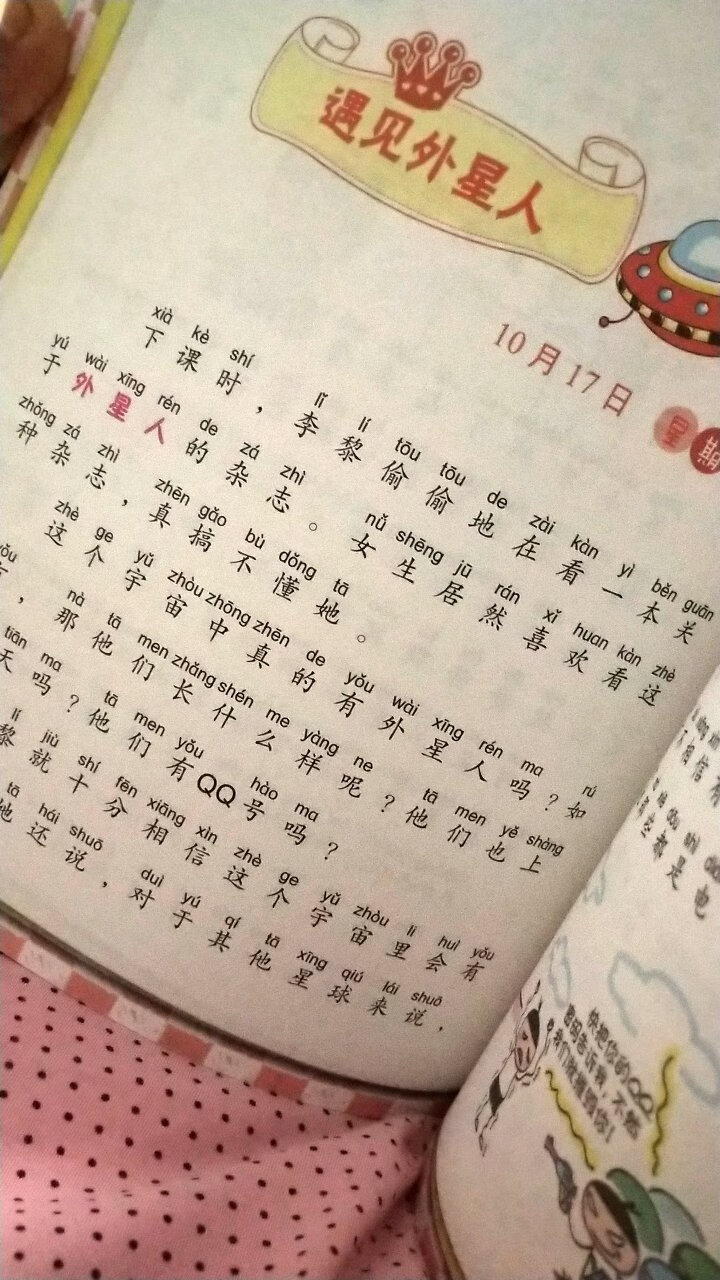 遇见外星人
10月17日 星期
xià kè shí lǐ lí tōu tōu de zài kàn yì běn guān
下课时，李黎偷偷地在看一本关
yú wài xīng rén de zá zhì nǚ shēng jū rán xǐ huan kàn zhè
于外星人的杂志。女生居然喜欢看这
zhǒng zá zhì zhēn gǎo bù dǒng tā
种杂志，真搞不懂她。
zhè ge yǔ zhòu zhōng zhēn de yǒu wài xīng rén ma rú
这个宇宙中真的有外星人吗？如
nà tā men zhǎng shén me yàng ne tā men yě shàng
，那他们长什么样呢？他们也上
tiān ma tā men yǒu QQ hào ma
天吗？他们有QQ号吗？
lí jiù shí fēn xiāng xìn zhè ge yǔ zhòu lǐ huì yǒu
黎就十分相信这个宇宙里会有
tā hái shuō duì yú qí tā xīng qiú lái shuō
她还说，对于其他星球来说，
相信有
都是电
快把你的QQ
密码告诉我，不然
我们就摧毁你！